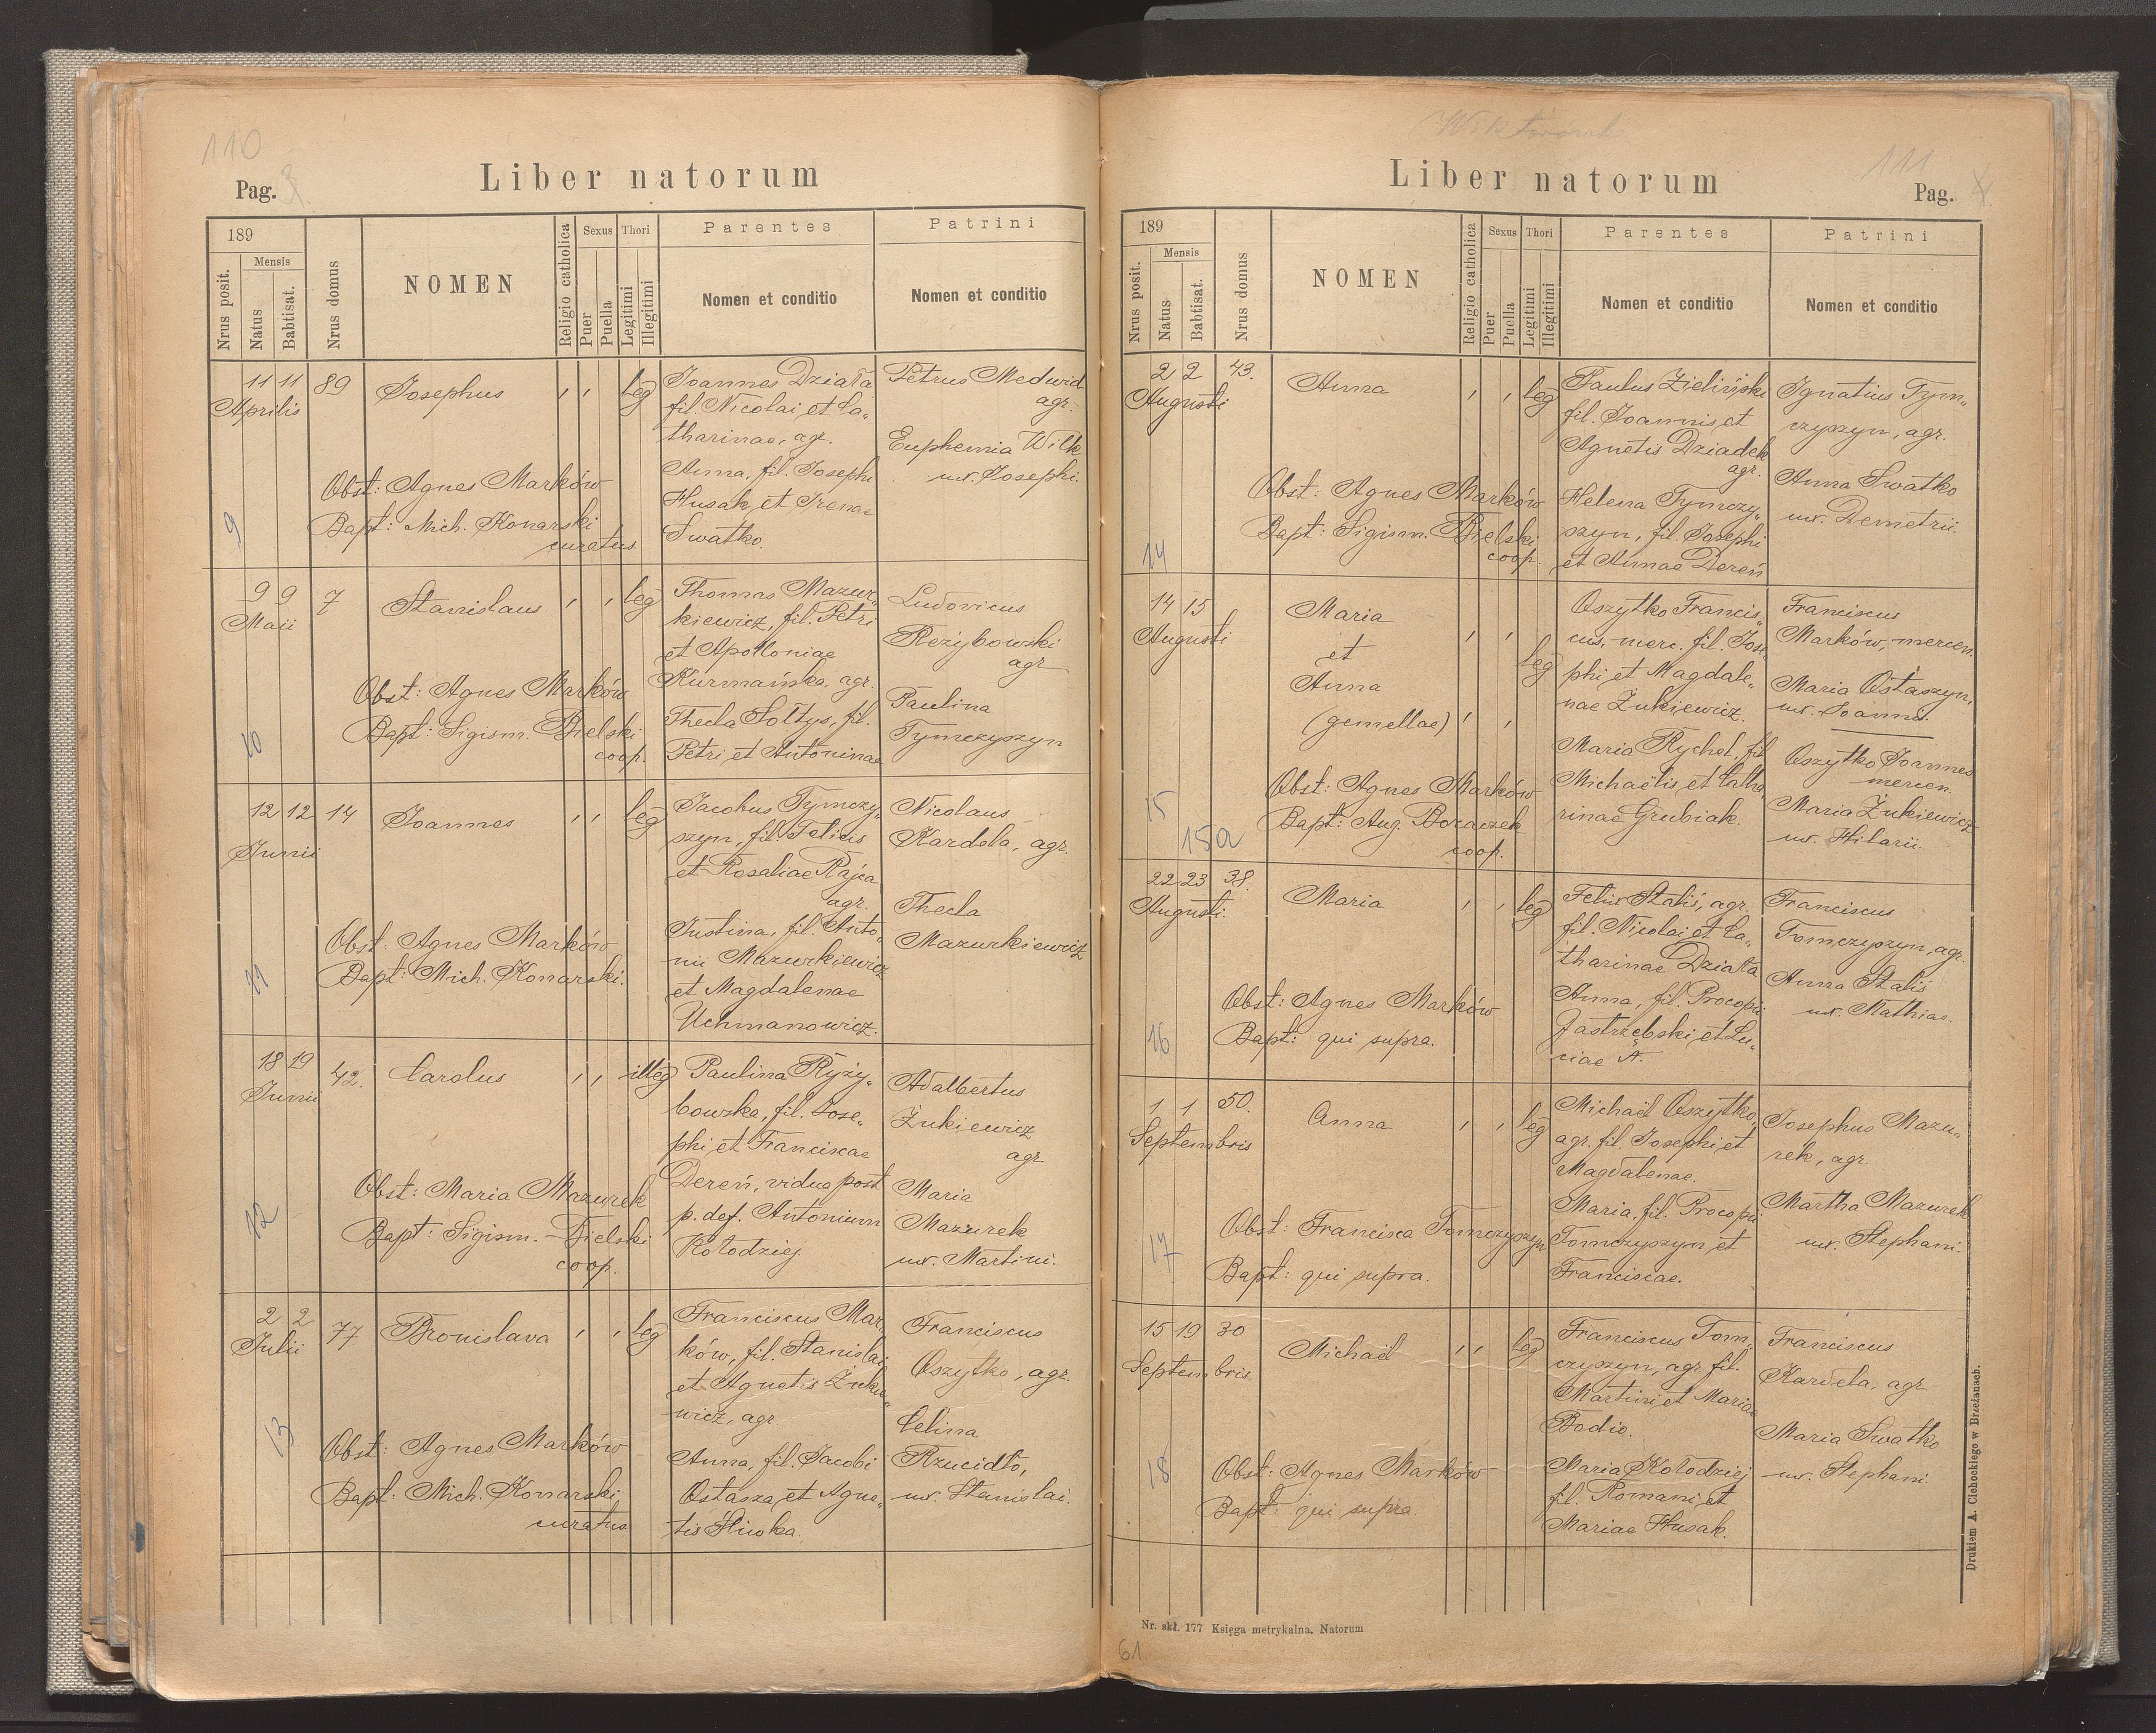 110
Pag. 3.
Liber natorum
189
Nrus posit.
Mensis
Natus
Babtisat.
Nrus domus
NOMEN
Religio catholica
Sexus
Puer
Puella
Thori
Legitimi
Illegitimi
Parentes
Nomen et conditio
Patrini
Nomen et conditio
9
11 11
Aprilis
89
Josephus
, ,
leg
Joannes Działa
fil. Nicolai et Ca„
tharinae, agr.
Anna, fil. Josephi
Husak, et Irenae
Swatko.
Petrus Medwid
agr.
Euphemia Wilk
ux. Josephi.
Obst: Agnes Marków
Bapt: Mich. Konarski
curatus
10
9 9
Maii
7
Stanislaus
, ,
leg
Thomas Mazur„
kiewicz, fil. Petri
et Apolloniae
Kurmańska, agr.
Thecla Sołtys, fil.
Petri et Antoninae
Ludovicus
Reżybowski
agr
Paulina
Tymczyszyn
Obst: Agnes Marków
Bapt: Sigism. Bielski
coop.
11
12 12
Junii
14
Joannes
, ,
leg
Jacobus Tymczy„
szyn, fil. Felicis
et Rosaliae Rajca
agr.
Justina, fil. Anto„
nii Mazurkiewicz
et Magdalenae
Uchmanowicz.
Nicolaus
Kardela, agr.
Thecla
Mazurkiewicz
Obst: Agnes Marków
Bapt: Mich. Konarski.
12
18 19
Junii
42.
Carolus
, ,
illeg
Paulina Ryży„
bowska, fil. Jose„
phi et Franciscae
Dereń, vidua post
p. def. Antonium
Kołodziej
Adalbertus
Żukiewicz
agr
Maria
Mazurek
ux. Martini.
Obst: Maria Mazurek
Bapt: Sigism. Bielski
coop.
13
2 2
Julii
77.
Bronislava
, ,
leg
Franciscus Mar„
ków, fil. Stanislai
et Agnetis Żukie„
wicz, agr.
Anna, fil. Jacobi
Ostasza, et Agne„
tis Hiwka
Franciscus
Oszytko, agr.
Celina
Rzucidło,
ux. Stanislai.
Obst: Agnes Marków
Bapt: Mich. Konarski
curatus
111
Pag. 4.
Liber natorum
189
Nrus posit.
Mensis
Natus
Babtisat.
Nrus domus
NOMEN
Religio catholica
Sexus
Puer
Puella
Thori
Legitimi
Illegitimi
Parentes
Nomen et conditio
Patrini
Nomen et conditio
14
2 2
Augusti
43.
Anna
, ,
leg
Paulus Zieliński
fil. Joannis et
Agnetis Dziadek
agr.
Helena Tymczy„
szyn, fil. Josephi
et Annae Dereń
Ignatius Tym„
czyszyn, agr.
Anna Swatko
ux. Demetrii.
Obst: Agnes Marków
Bapt: Sigism. Bielski
coop.
15
15a
14 15
Augusti
Maria
et
Anna
(gemellae)
, ,
, ,
leg
Oszytko Francis„
cus, merc. fil. Jose„
phi et Magdale„
nae Żukiewicz.
Maria Rychel, fil
Michaëlis, et Catha„
rinae Grubiak
Franciscus
Marków, mercen.
Maria Ostaszyn,
ux. Joannis.
Oszytko Joannes
mercen.
Maria Żukiewicz
ux. Hilarii.
Obst: Agnes Marków
Bapt: Aug. Boraczek
coop.
16
22 23
Augusti.
38.
Maria
, ,
leg
Felix Staliś, agr.
fil. Nicolai et Ca„
tharinae Działa
Anna, fil. Procopii
Jastrzębski, et Lu„
ciae A.
Franciscus
Tomczyszyn, agr.
Anna Staliś
ux. Mathiae.
Obst: Agnes Marków
Bapt: qui supra.
17
1 1
Septembris
50.
Anna
, ,
leg
Michaël Oszytko,
agr. fil. Josephi et
Magdalenae.
Maria, fil. Procopii
Tomczyszyn et
Franciscae.
Josephus Mazu„
rek, agr.
Martha Mazurek
ux. Stephani.
Obst: Francisca Tomczyszyn
Bapt: qui supra.
18
15 19
Septembris
30
Michaël
, ,
leg
Franciscus Tom„
czyszyn, agr. fil.
Martini et Mariae
Bodio.
Maria Kołodziej
fil. Romani et
Mariae Husak.
Franciscus
Kardela, agr
Maria Swatko
ux. Stephani.
Obst: Agnes Marków
Bapt: qui supra.
Drukiem A. Cichockiego w Brzeżanach.
Nr. skł. 177 Księga metrykalna. Natorum
61